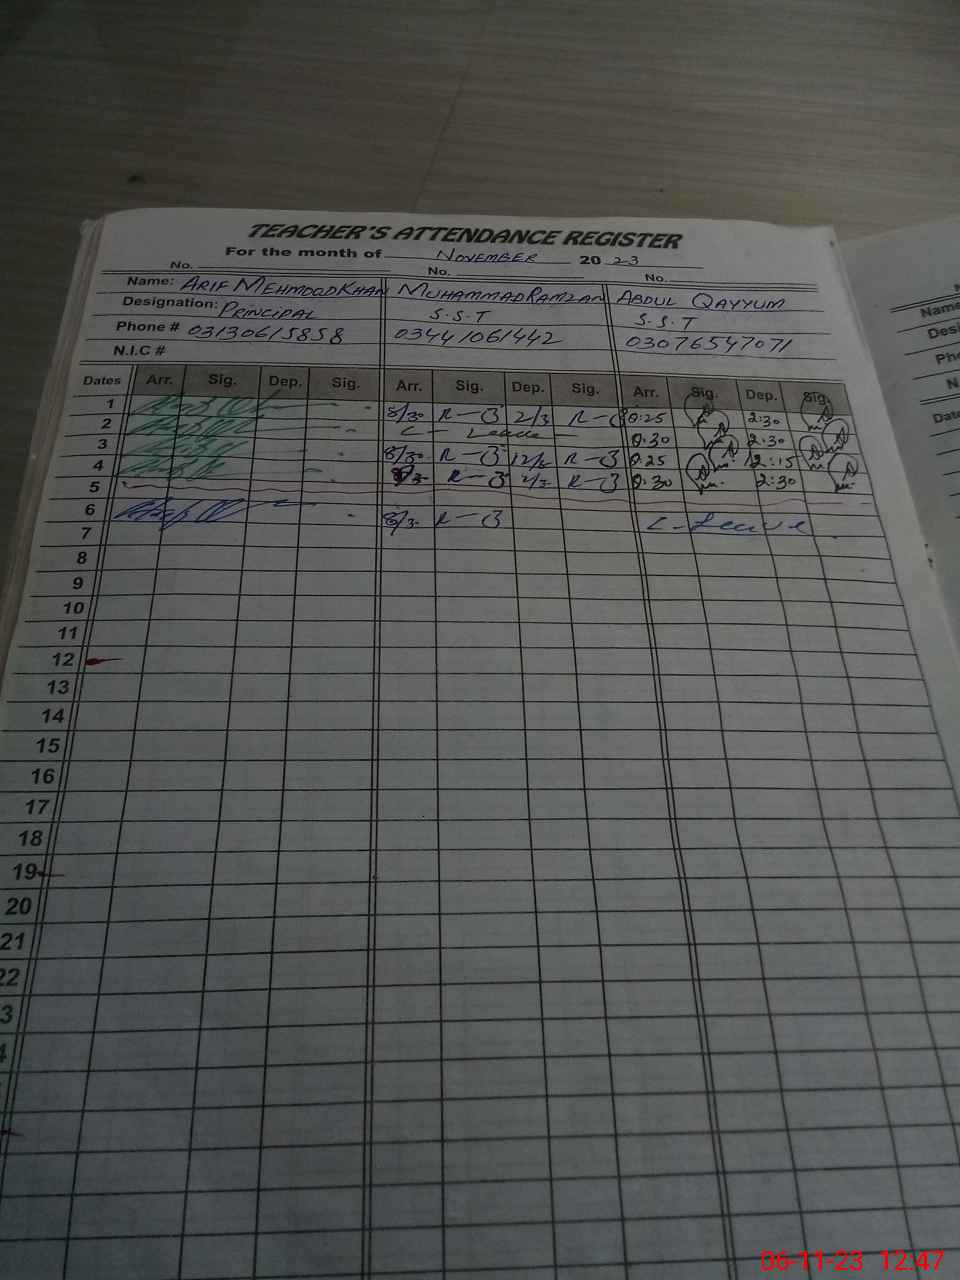 TEACHER'S ATTENDANCE REGISTER
For the month of NOVEMBER 2023
No. No. No.
Name: ARIF MEHMOOD KHAN MUHAMMAD RAMZAN ABDUL QAYYUM
Designation: PRINCIPAL S.S.T S.S.T
Phone # 03130615858 03441061442 03076547071
N.I.C #
Dates Arr. Sig. Dep. Sig. Arr. Sig. Dep. Sig. Arr. Sig. Dep. Sig.
1 8/30 2/3 8:25 2:30
2 C - Leave 8:30 2:30
3 8/30 12/2 8:25 12:15
4 8/3 2/3 8:30 2:30
5
6 8/3 C - Leave
7
8
9
10
11
12
13
14
15
16
17
18
19
20
21
22
3
4
Name
Desi
Pho
N
Dat
06-11-23 12:47